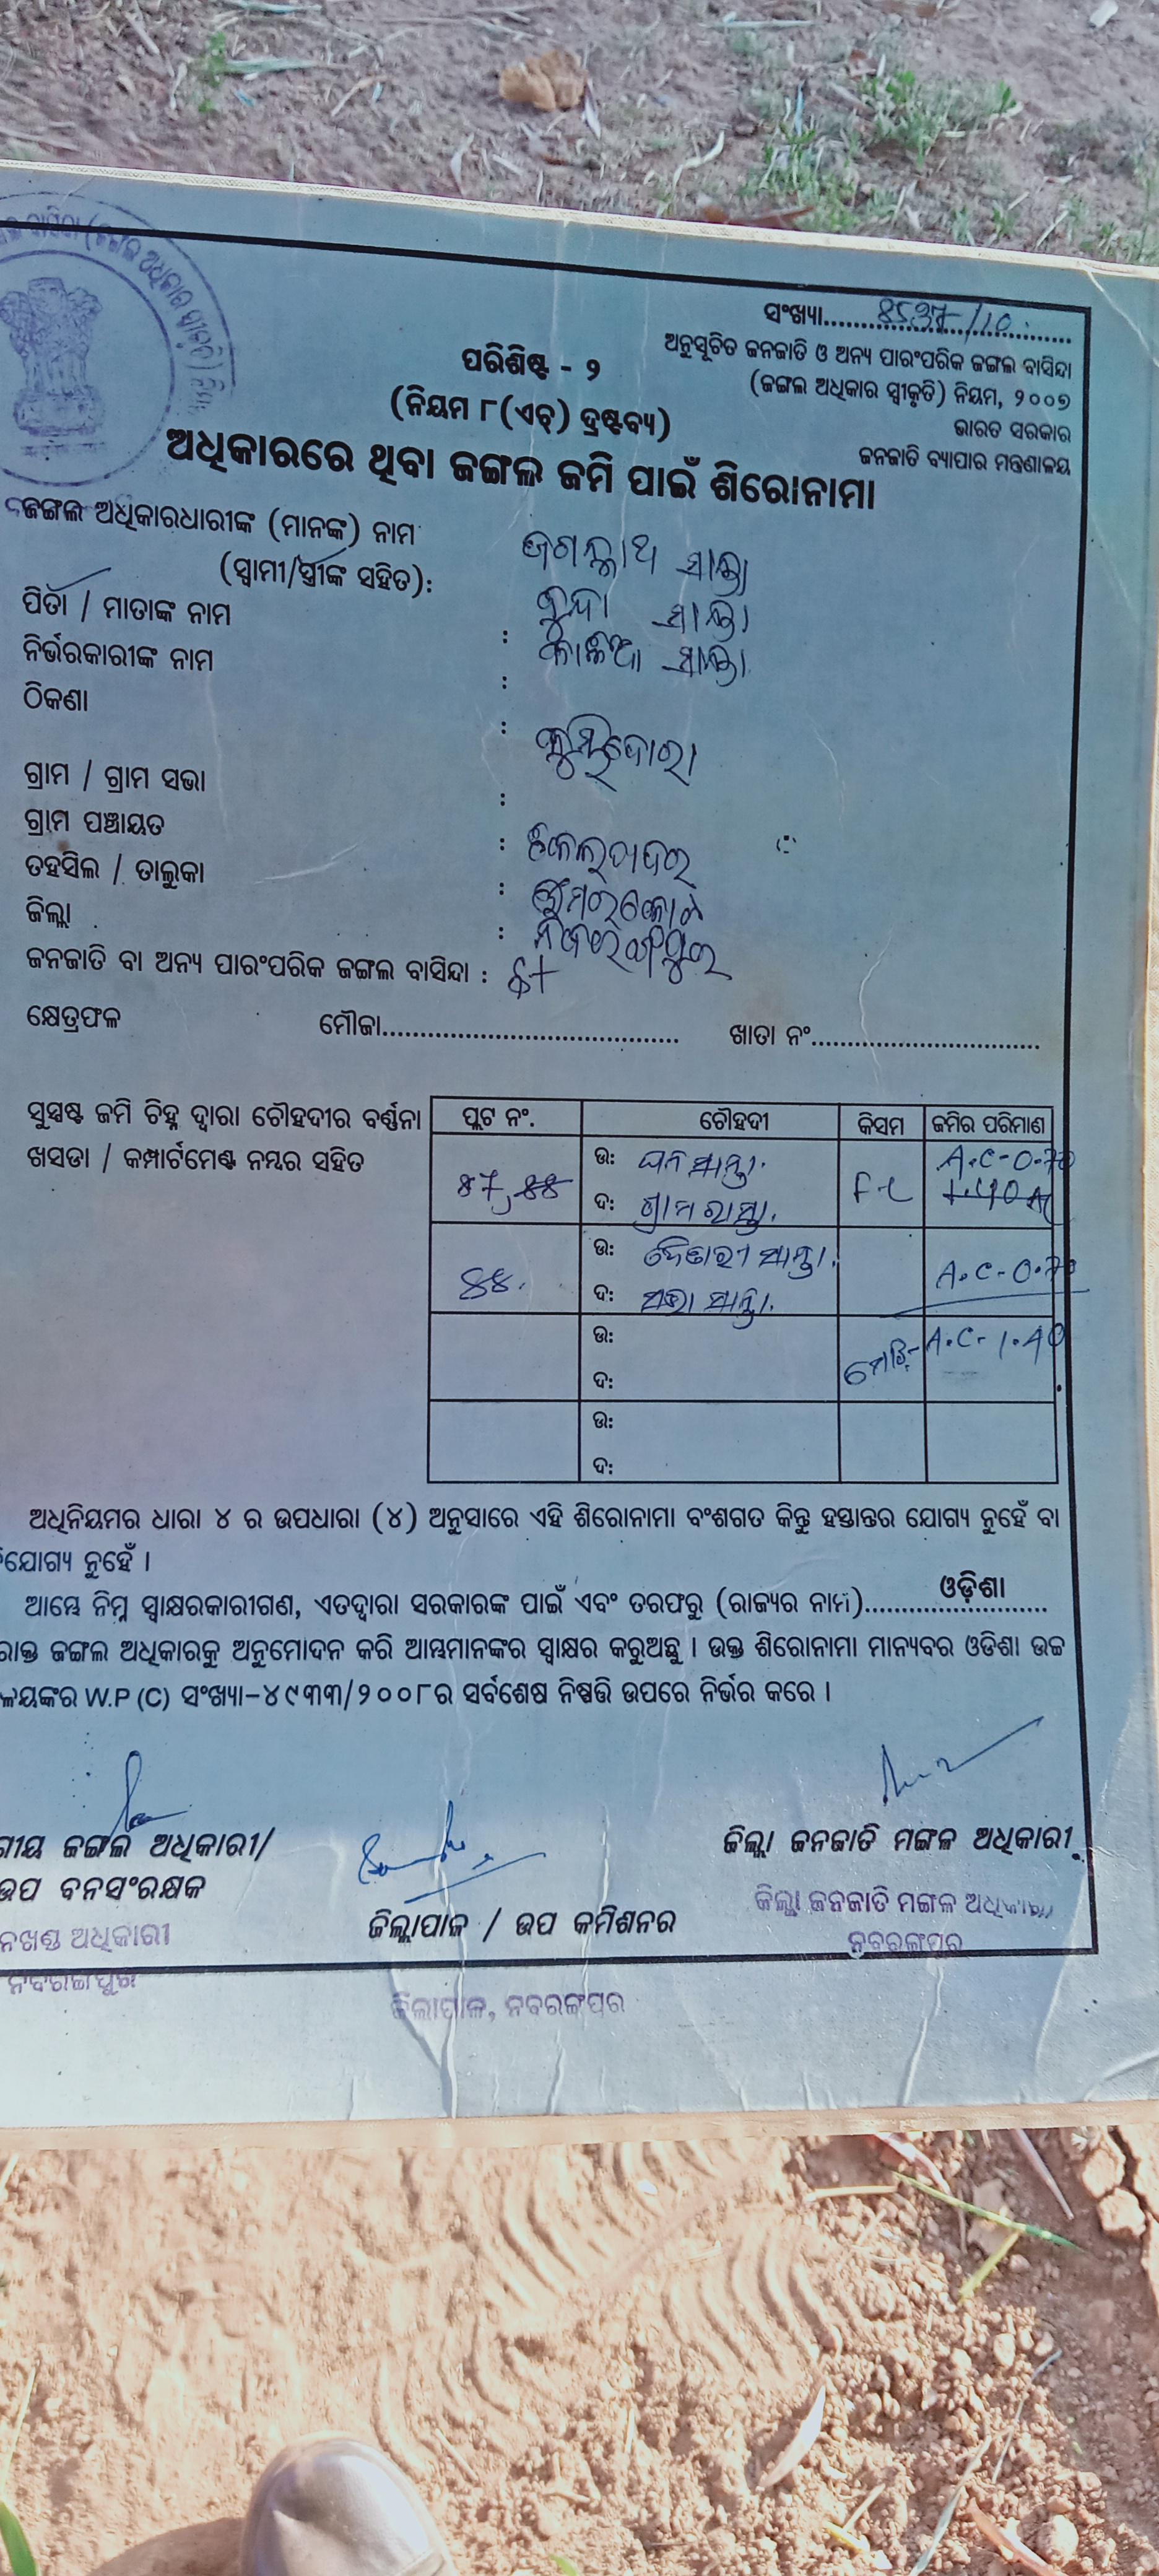 ସଂଖ୍ୟା........8537/10........
ଅନୁସୂଚିତ ଜନଜାତି ଓ ଅନ୍ୟ ପାରଂପରିକ ଜଙ୍ଗଲ ବାସିନ୍ଦା
(ଜଙ୍ଗଲ ଅଧିକାର ସ୍ୱୀକୃତି) ନିୟମ, ୨୦୦୭
ଭାରତ ସରକାର
ଜନଜାତି ବ୍ୟାପାର ମନ୍ତ୍ରଣାଳୟ
ପରିଶିଷ୍ଟ - ୨
(ନିୟମ ୮(ଏଚ୍) ଦ୍ରଷ୍ଟବ୍ୟ)
ଅଧିକାରରେ ଥିବା ଜଙ୍ଗଲ ଜମି ପାଇଁ ଶିରୋନାମା
ଜଙ୍ଗଲ ଅଧିକାରଧାରୀଙ୍କ (ମାନଙ୍କ) ନାମ
(ସ୍ୱାମୀ/ସ୍ତ୍ରୀଙ୍କ ସହିତ): ଜଗନ୍ନାଥ ସାନ୍ତା
ପିତା / ମାତାଙ୍କ ନାମ : ସାନ୍ତା
ନିର୍ଭରକାରୀଙ୍କ ନାମ : ସାନ୍ତା
ଠିକଣା :
ଗ୍ରାମ / ଗ୍ରାମ ସଭା :
ଗ୍ରାମ ପଞ୍ଚାୟତ :
ତହସିଲ / ତାଲୁକା :
ଜିଲ୍ଲା : ନବରଙ୍ଗପୁର
ଜନଜାତି ବା ଅନ୍ୟ ପାରଂପରିକ ଜଙ୍ଗଲ ବାସିନ୍ଦା :
କ୍ଷେତ୍ରଫଳ ମୌଜା........................ ଖାତା ନଂ........................
ସୁସ୍ପଷ୍ଟ ଜମି ଚିହ୍ନ ଦ୍ୱାରା ଚୌହଦୀର ବର୍ଣ୍ଣନା
ଖସଡା / କମ୍ପାର୍ଟମେଣ୍ଟ ନମ୍ବର ସହିତ
ପ୍ଲଟ ନଂ. ଚୌହଦୀ କିସମ ଜମିର ପରିମାଣ
ଉ: ସାନ୍ତା. A.C-0.70
ଦ: ଗ୍ରାମ ରାସ୍ତା.
ଉ: ସାନ୍ତା. A.C-0.70
ଦ: ସାନ୍ତା.
ଉ: A.C-1.40
ଦ:
ଉ:
ଦ:
ଅଧିନିୟମର ଧାରା ୪ ର ଉପଧାରା (୪) ଅନୁସାରେ ଏହି ଶିରୋନାମା ବଂଶଗତ କିନ୍ତୁ ହସ୍ତାନ୍ତର ଯୋଗ୍ୟ ନୁହେଁ ବା
ଯୋଗ୍ୟ ନୁହେଁ ।
ଆମ୍ଭେ ନିମ୍ନ ସ୍ୱାକ୍ଷରକାରୀଗଣ, ଏତଦ୍ୱାରା ସରକାରଙ୍କ ପାଇଁ ଏବଂ ତରଫରୁ (ରାଜ୍ୟର ନାମ)........ଓଡ଼ିଶା........
ରୋକ୍ତ ଜଙ୍ଗଲ ଅଧିକାରକୁ ଅନୁମୋଦନ କରି ଆମ୍ଭମାନଙ୍କର ସ୍ୱାକ୍ଷର କରୁଅଛୁ । ଉକ୍ତ ଶିରୋନାମା ମାନ୍ୟବର ଓଡିଶା ଉଚ୍ଚ
ଳୟଙ୍କର W.P (C) ସଂଖ୍ୟା-୪୯୩୩/୨୦୦୮ର ସର୍ବଶେଷ ନିଷ୍ପତ୍ତି ଉପରେ ନିର୍ଭର କରେ ।
ଗୀୟ ଜଙ୍ଗଲ ଅଧିକାରୀ/
ଉପ ବନସଂରକ୍ଷକ
ନଖଣ୍ଡ ଅଧିକାରୀ
ନବରଙ୍ଗପୁର
ଜିଲ୍ଲାପାଳ / ଉପ କମିଶନର
ଜିଲାପାଳ, ନବରଙ୍ଗପୁର
ଜିଲ୍ଲା ଜନଜାତି ମଙ୍ଗଳ ଅଧିକାରୀ
ଜିଲ୍ଲା ଜନଜାତି ମଙ୍ଗଳ ଅଧିକାରୀ
ନବରଙ୍ଗପୁର